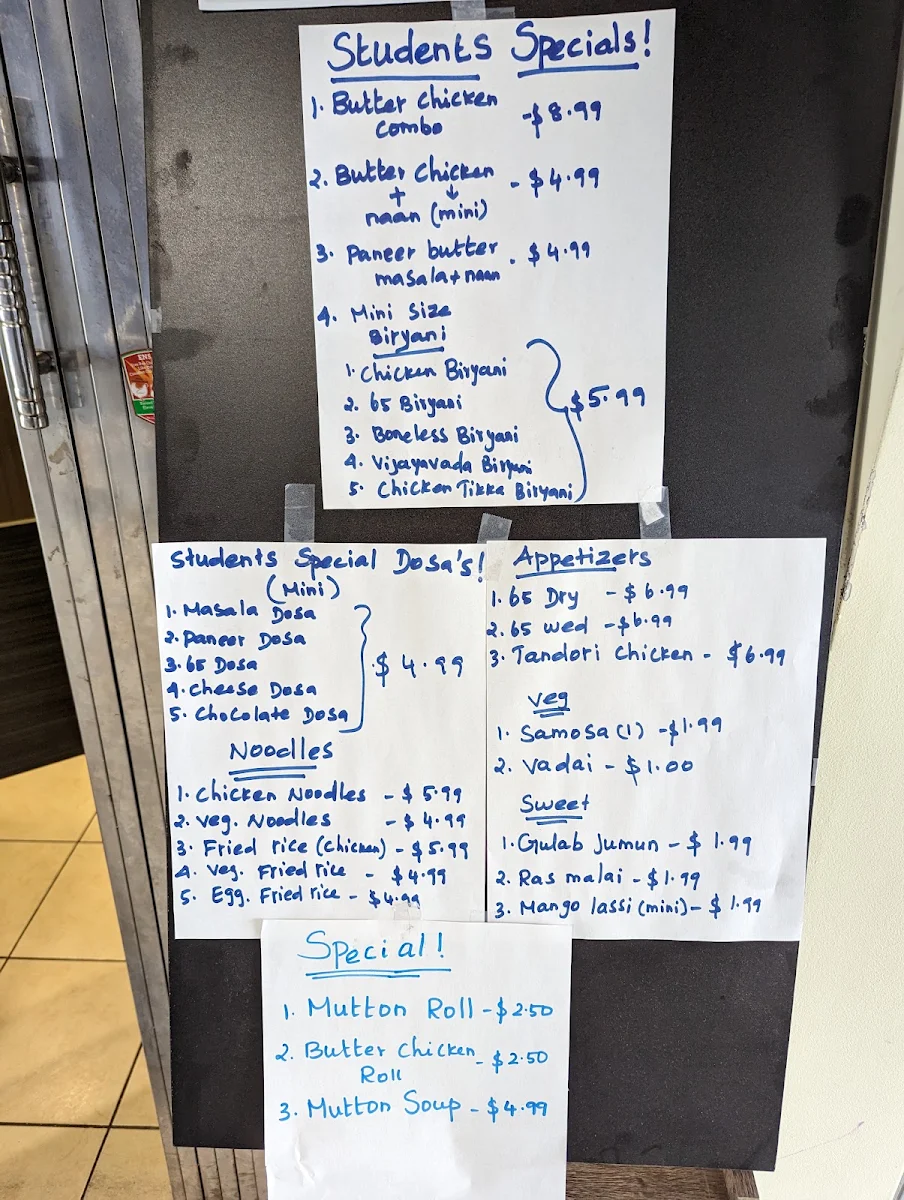 Students Specials!
1. Butter chicken -$8.99
combo
2. Butter Chicken - $4.99
+ ↓
naan (mini)
3. Paneer butter - $4.99
masala + naan
4. Mini Size
Biryani
1. Chicken Biryani
2. 65 Biryani
3. Boneless Biryani
4. Vijayavada Biryani
5. Chicken Tikka Biryani
$5.99
Students Special Dosa's!
(Mini)
1. Masala Dosa
2. Paneer Dosa
3. 65 Dosa
4. Cheese Dosa
5. Chocolate Dosa
$4.99
Noodles
1. Chicken Noodles - $5.99
2. Veg. Noodles - $4.99
3. Fried rice (Chicken) - $5.99
4. Veg. Fried rice - $4.99
5. Egg. Fried rice - $4.99
Appetizers
1. 65 Dry - $6.99
2. 65 wed - $6.99
3. Tandori Chicken - $6.99
Veg
1. Samosa (1) - $1.99
2. Vadai - $1.00
Sweet
1. Gulab Jumun - $1.99
2. Ras malai - $1.99
3. Mango lassi (mini) - $1.99
Special!
1. Mutton Roll - $2.50
2. Butter Chicken - $2.50
Roll
3. Mutton Soup - $4.99